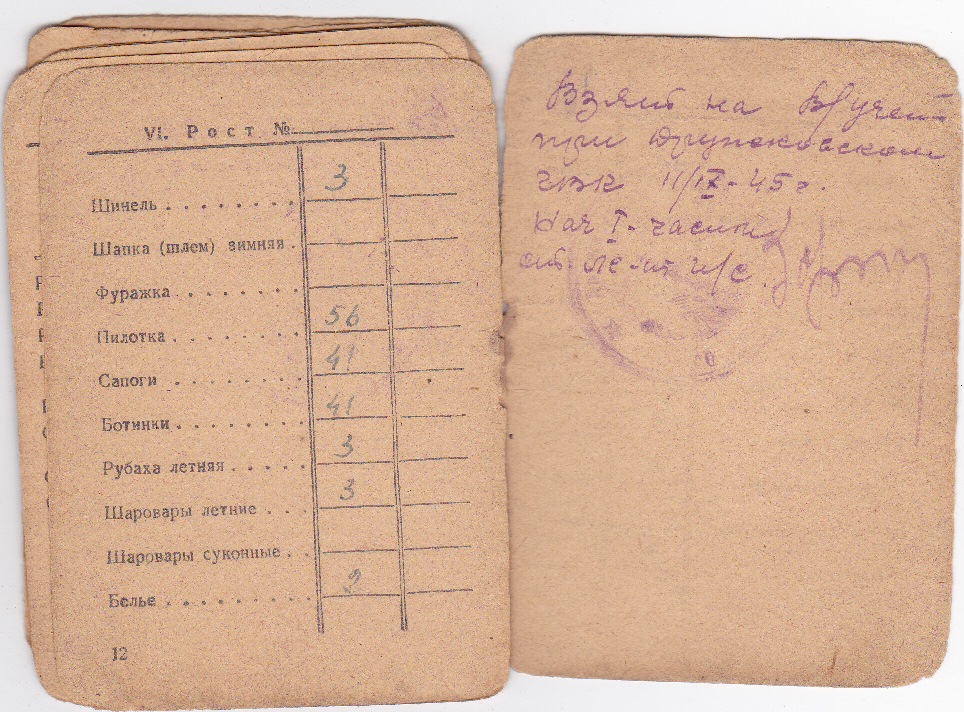 VI. Рост №
Шинель . . . . . . . . 3
Шапка (шлем) зимняя .
Фуражка . . . . . . . .
Пилотка . . . . . . . . 56
Сапоги . . . . . . . . 41
Ботинки . . . . . . . . 41
Рубаха летняя . . . . . 3
Шаровары летние . . . 3
Шаровары суконные . .
Белье . . . . . . . . . 2
12
Взят на Вр учет
при Дружковском
ГВК 11/IX-45 г.
Нач I-части
ст. ле-нт и/с